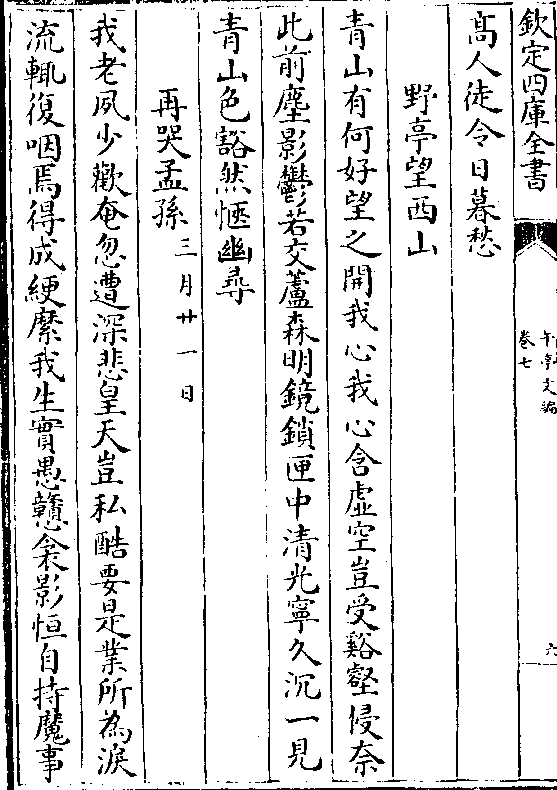 欽定四庫全書
午亭文編
卷七
六
高人徒令日暮愁
野亭望西山
青山有何好望之開我心我心含虛空豈受谿壑侵奈
此前塵影鬱若交蘆森明鏡鎖匣中清光寧久沉一見
青山色豁然愜幽尋
再哭孟孫三月廿一日
我老夙少歡奄忽遭深悲皇天豈私酷要是業所為淚
流輒復咽焉得成綆縻我生實愚戇衾影恒自持魔事